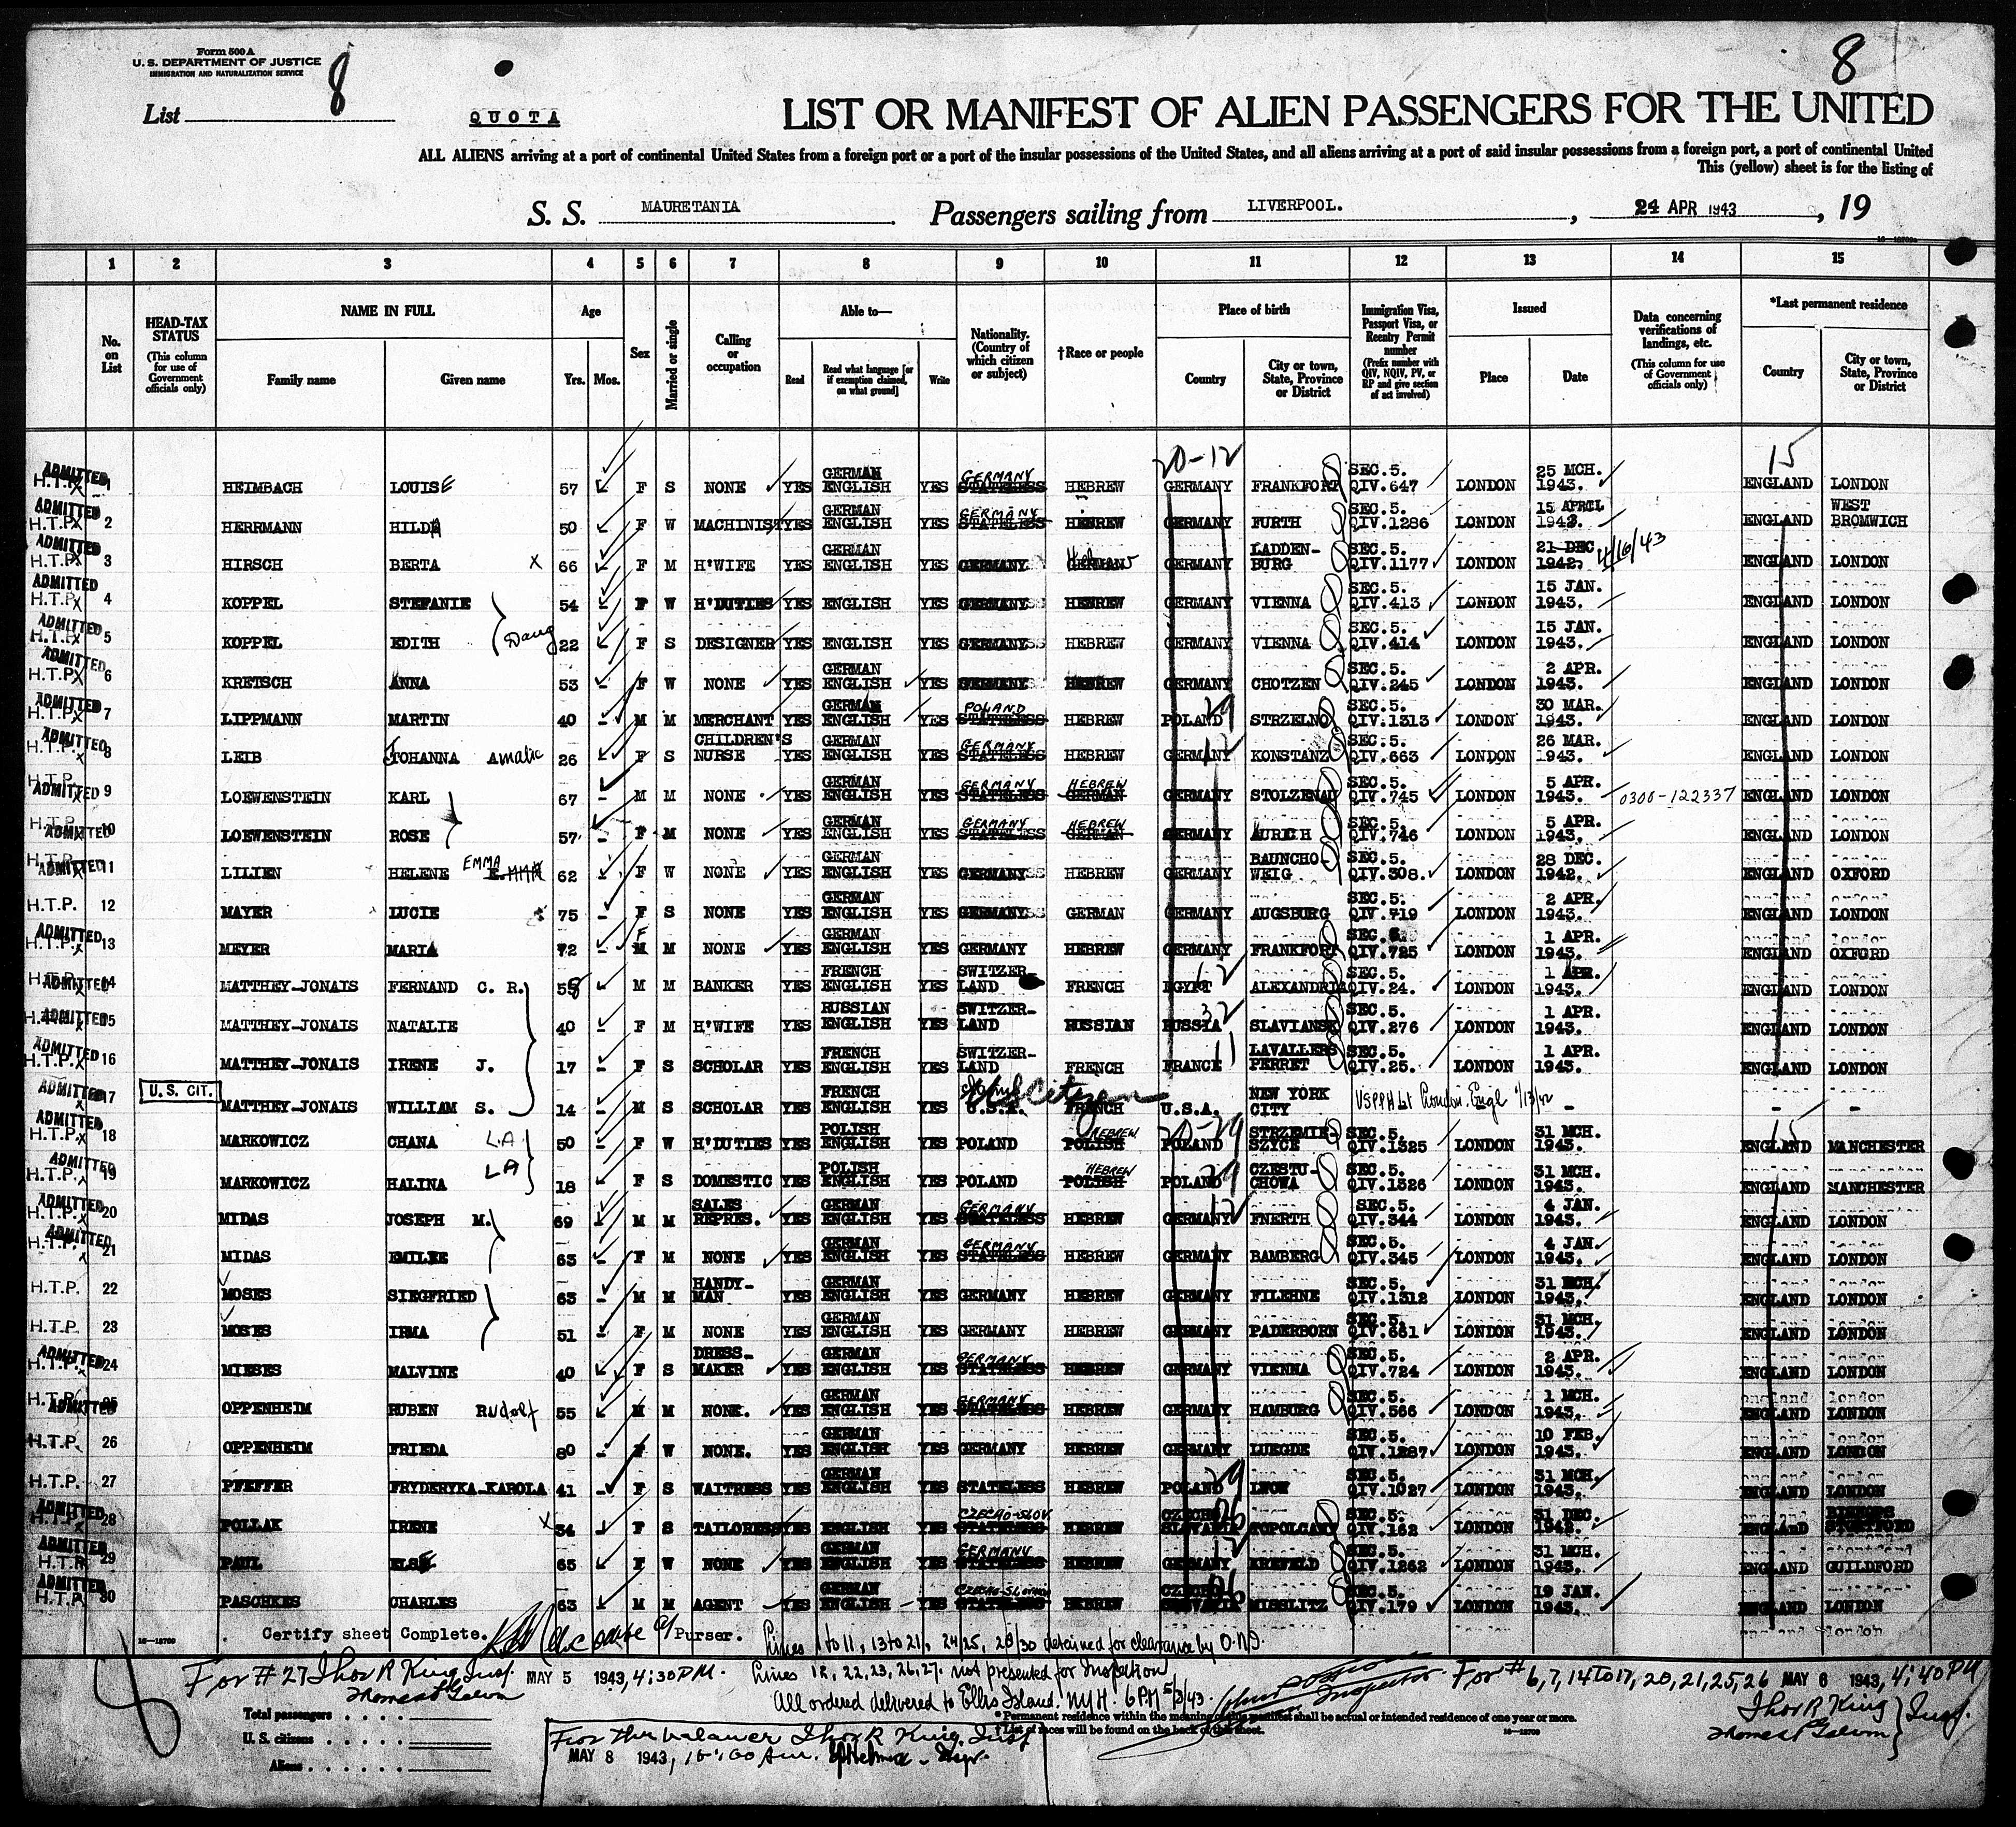 Form 500 A
U. S. DEPARTMENT OF JUSTICE
IMMIGRATION AND NATURALIZATION SERVICE
8
8
List
QUOTA
LIST OR MANIFEST OF ALIEN PASSENGERS FOR THE UNITED
ALL ALIENS arriving at a port of continental United States from a foreign port or a port of the insular possessions of the United States, and all aliens arriving at a port of said insular possessions from a foreign port, a port of continental United
This (yellow) sheet is for the listing of
S. S. MAURETANIA. Passengers sailing from LIVERPOOL., 24 APR 1943, 19
1 2 3 4 5 6 7 8 9 10 11 12 13 14 15
No. on List
HEAD-TAX STATUS (This column for use of Government officials only)
NAME IN FULL Family name Given name
Age Yrs. Mos.
Sex
Married or single
Calling or occupation
Able to— Read Read what language [or if exemption claimed, on what ground] Write
Nationality. (Country of which citizen or subject)
†Race or people
Place of birth Country City or town, State, Province or District
Immigration Visa, Passport Visa, or Reentry Permit number (Prefix number with QIV, NQIV, PV, or RP and give section of act involved)
Issued Place Date
Data concerning verifications of landings, etc. (This column for use of Government officials only)
*Last permanent residence Country City or town, State, Province or District
20-12 15
ADMITTED H.T.P. 1 HEIMBACH LOUISE 57 F S NONE YES GERMAN ENGLISH YES GERMANY STATELESS HEBREW GERMANY FRANKFORT SEC.5. QIV.647 LONDON 25 MCH. 1943. ENGLAND LONDON
ADMITTED H.T.P. 2 HERRMANN HILDA 50 F W MACHINIST YES GERMAN ENGLISH YES GERMANY STATELESS HEBREW GERMANY FURTH SEC.5. QIV.1286 LONDON 15 APRIL 1943. ENGLAND WEST BROMWICH
ADMITTED H.T.P. 3 HIRSCH BERTA X 66 F M H'WIFE YES GERMAN ENGLISH YES GERMANY Hebrew GERMAN GERMANY LADDEN-BURG SEC.5. QIV.1177 LONDON 21 DEC 1942. 4/16/43 ENGLAND LONDON
ADMITTED H.T.P. 4 KOPPEL STEFANIE 54 F W H'DUTIES YES ENGLISH YES GERMANY HEBREW GERMANY VIENNA SEC.5. QIV.413 LONDON 15 JAN. 1943. ENGLAND LONDON
ADMITTED H.T.P. 5 KOPPEL EDITH Daug 22 F S DESIGNER YES ENGLISH YES GERMANY HEBREW GERMANY VIENNA SEC.5. QIV.414 LONDON 15 JAN. 1943. ENGLAND LONDON
ADMITTED H.T.P. 6 KRETSCH ANNA 53 F W NONE YES GERMAN ENGLISH YES GERMANY HEBREW GERMANY CHOTZEN SEC.5. QIV.245 LONDON 2 APR. 1943. ENGLAND LONDON
ADMITTED H.T.P. 7 LIPPMANN MARTIN 40 M M MERCHANT YES GERMAN ENGLISH YES POLAND STATELESS HEBREW POLAND 29 STRZELNO SEC.5. QIV.1313 LONDON 30 MAR. 1943. ENGLAND LONDON
ADMITTED H.T.P. 8 LEIB JOHANNA Amalie 26 F S CHILDREN'S NURSE YES GERMAN ENGLISH YES GERMANY STATELESS HEBREW GERMANY 12 KONSTANZ SEC.5. QIV.663 LONDON 26 MAR. 1943. ENGLAND LONDON
H.T.P. ADMITTED 9 LOEWENSTEIN KARL 67 M M NONE YES GERMAN ENGLISH YES GERMANY STATELESS HEBREW GERMAN GERMANY STOLZENAU SEC.5. QIV.745 LONDON 5 APR. 1943. 0300-122337 ENGLAND LONDON
H.T.P. ADMITTED 10 LOEWENSTEIN ROSE 57 F M NONE YES GERMAN ENGLISH YES GERMANY STATELESS HEBREW GERMAN GERMANY AURICH SEC.5. QIV.746 LONDON 5 APR. 1943. ENGLAND LONDON
H.T.P. ADMITTED 11 LILIEN HELENE EMMA 62 F W NONE YES GERMAN ENGLISH YES GERMANY HEBREW GERMANY BAUNCHO-WEIG SEC.5. QIV.308. LONDON 28 DEC. 1942. ENGLAND OXFORD
H.T.P. 12 MAYER LUCIE 75 F S NONE YES GERMAN ENGLISH YES GERMANY GERMAN GERMANY AUGSBURG SEC.5. QIV.719 LONDON 2 APR. 1943. ENGLAND LONDON
ADMITTED H.T.P. 13 MEYER MARIA 72 F M M NONE YES GERMAN ENGLISH YES GERMANY HEBREW GERMANY FRANKFORT SEC. 5. QIV.725 LONDON 1 APR. 1943. ENGLAND OXFORD
H.T.P. ADMITTED 14 MATTHEY-JONAIS FERNAND C. R. 58 M M BANKER YES FRENCH ENGLISH YES SWITZER-LAND FRENCH EGYPT 62 ALEXANDRIA SEC.5. QIV.24. LONDON 1 APR. 1943. ENGLAND LONDON
ADMITTED 15 MATTHEY-JONAIS NATALIE 40 F M H'WIFE YES RUSSIAN ENGLISH YES SWITZER-LAND RUSSIAN RUSSIA 32 SLAVIANSK SEC.5. QIV.276 LONDON 1 APR. 1943. ENGLAND LONDON
ADMITTED H.T.P. 16 MATTHEY-JONAIS IRENE J. 17 F S SCHOLAR YES FRENCH ENGLISH YES SWITZER-LAND FRENCH FRANCE 11 LAVALLERS PERRET SEC.5. QIV.25. LONDON 1 APR. 1943. ENGLAND LONDON
ADMITTED 17 U. S. CIT. MATTHEY-JONAIS WILLIAM S. 14 M S SCHOLAR YES FRENCH ENGLISH YES U.S.A. Citizen FRENCH U.S.A. NEW YORK CITY London. Engl 1/13/42 - - -
ADMITTED H.T.P. 18 MARKOWICZ CHANA L.A 50 F W H'DUTIES YES POLISH ENGLISH YES POLAND HEBREW POLISH 20-29 POLAND STRZEMIE-SZYCE SEC.5. QIV.1325 LONDON 31 MCH. 1943. 15 ENGLAND MANCHESTER
ADMITTED H.T.P. 19 MARKOWICZ HALINA LA 18 F S DOMESTIC YES POLISH ENGLISH YES POLAND HEBREW POLISH POLAND 29 CZESTU-CHOWA SEC.5. QIV.1326 LONDON 31 MCH. 1943. ENGLAND MANCHESTER
ADMITTED H.T.P. 20 MIDAS JOSEPH M. 69 M M SALES REPRES. YES GERMAN ENGLISH YES GERMANY STATELESS HEBREW GERMANY 12 FNERTH SEC.5. QIV.344 LONDON 4 JAN. 1943. ENGLAND LONDON
ADMITTED H.T.P. 21 MIDAS EMILIE 63 F M NONE YES GERMAN ENGLISH YES GERMANY STATELESS HEBREW GERMANY BAMBERG SEC.5. QIV.345 LONDON 4 JAN. 1943. ENGLAND LONDON
H.T.P. 22 MOSES SIEGFRIED 63 M M HANDY-MAN YES GERMAN ENGLISH YES GERMANY HEBREW GERMANY FILEHNE SEC.5. QIV.1312 LONDON 31 MCH. 1943. ENGLAND LONDON
H.T.P. 23 MOSES IRMA 51 F M NONE YES GERMAN ENGLISH YES GERMANY HEBREW GERMANY PADERBORN SEC.5. QIV.661 LONDON 31 MCH. 1943. ENGLAND LONDON
ADMITTED H.T.P. 24 MIESES MALVINE 40 F S DRESS-MAKER YES GERMAN ENGLISH YES GERMANY STATELESS HEBREW GERMANY VIENNA SEC.5. QIV.724 LONDON 2 APR. 1943. ENGLAND LONDON
H.T.P. ADMITTED 25 OPPENHEIM RUBEN Rudolf 55 M M NONE. YES GERMAN ENGLISH YES GERMANY STATELESS HEBREW GERMANY HAMBURG SEC.5. QIV.566 LONDON 1 MCH. 1943. ENGLAND LONDON
H.T.P. 26 OPPENHEIM FRIEDA 80 F W NONE. YES GERMAN ENGLISH YES GERMANY HEBREW GERMANY LUEGDE SEC.5. QIV.1287 LONDON 10 FEB. 1943. ENGLAND LONDON
H.T.P. 27 PFEFFER FRYDERYKA-KAROLA 41 F S WAITRESS YES GERMAN ENGLISH YES STATELESS HEBREW POLAND 29 LWOW SEC.5. QIV.1027 LONDON 31 MCH. 1943. ENGLAND LONDON
ADMITTED H.T.P. 28 POLLAK IRENE X 34 F S TAILORESS YES ENGLISH YES CZECHO-SLOV STATELESS HEBREW CZECHO SLOVAKIA TOPOLCANY SEC.5. QIV.162 LONDON 31 DEC. 1942. ENGLAND BISHOPS STORTFORD
ADMITTED H.T.P. 29 PAUL ELSE 65 F W NONE YES GERMAN ENGLISH YES GERMANY STATELESS HEBREW GERMANY 12 KREFELD SEC.5. QIV.1262 LONDON 31 MCH. 1943. ENGLAND GUILDFORD
ADMITTED H.T.P. 30 PASCHKES CHARLES 63 M M AGENT YES GERMAN ENGLISH YES CZECHO-SLOVAKIA STATELESS HEBREW CZECHO SLOVAKIA MISSLITZ SEC.5. QIV.179 LONDON 19 JAN. 1943. ENGLAND LONDON
16—18709 Certify sheet Complete. Purser. Lines 1 to 11, 13 to 21, 24 25, 28/30 detained for clearance by O.N.I.
8 For #27 Thos R King Insp. MAY 5 1943, 4:30 PM. Lines 12, 22, 23, 26, 27. not presented for Inspection For # 6, 7, 14 to 17, 20, 21, 25, 26 MAY 6 1943, 4:40 PM
All ordered delivered to Ellis Island. NYH. 6 PM 5/3/43. Inspector Thos R King Insp.
Total passengers
U. S. citizens
Aliens
* Permanent residence within the meaning of this manifest shall be actual or intended residence of one year or more.
† List of races will be found on the back of this sheet. 16—18709
For the balance Thos R King. Insp
MAY 8 1943, 10:00 Am.